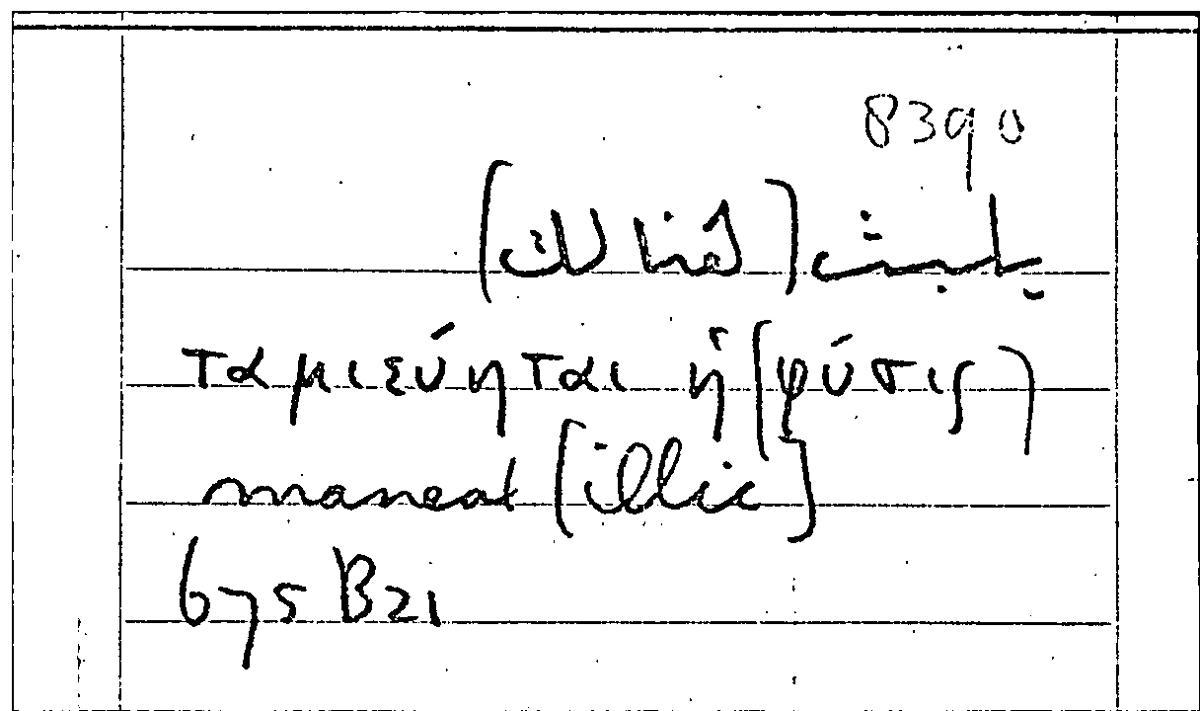 8390
يلبث (هنا لك)
ταμιεύηται ἡ (φύσις)
maneat [illic]
675 B21